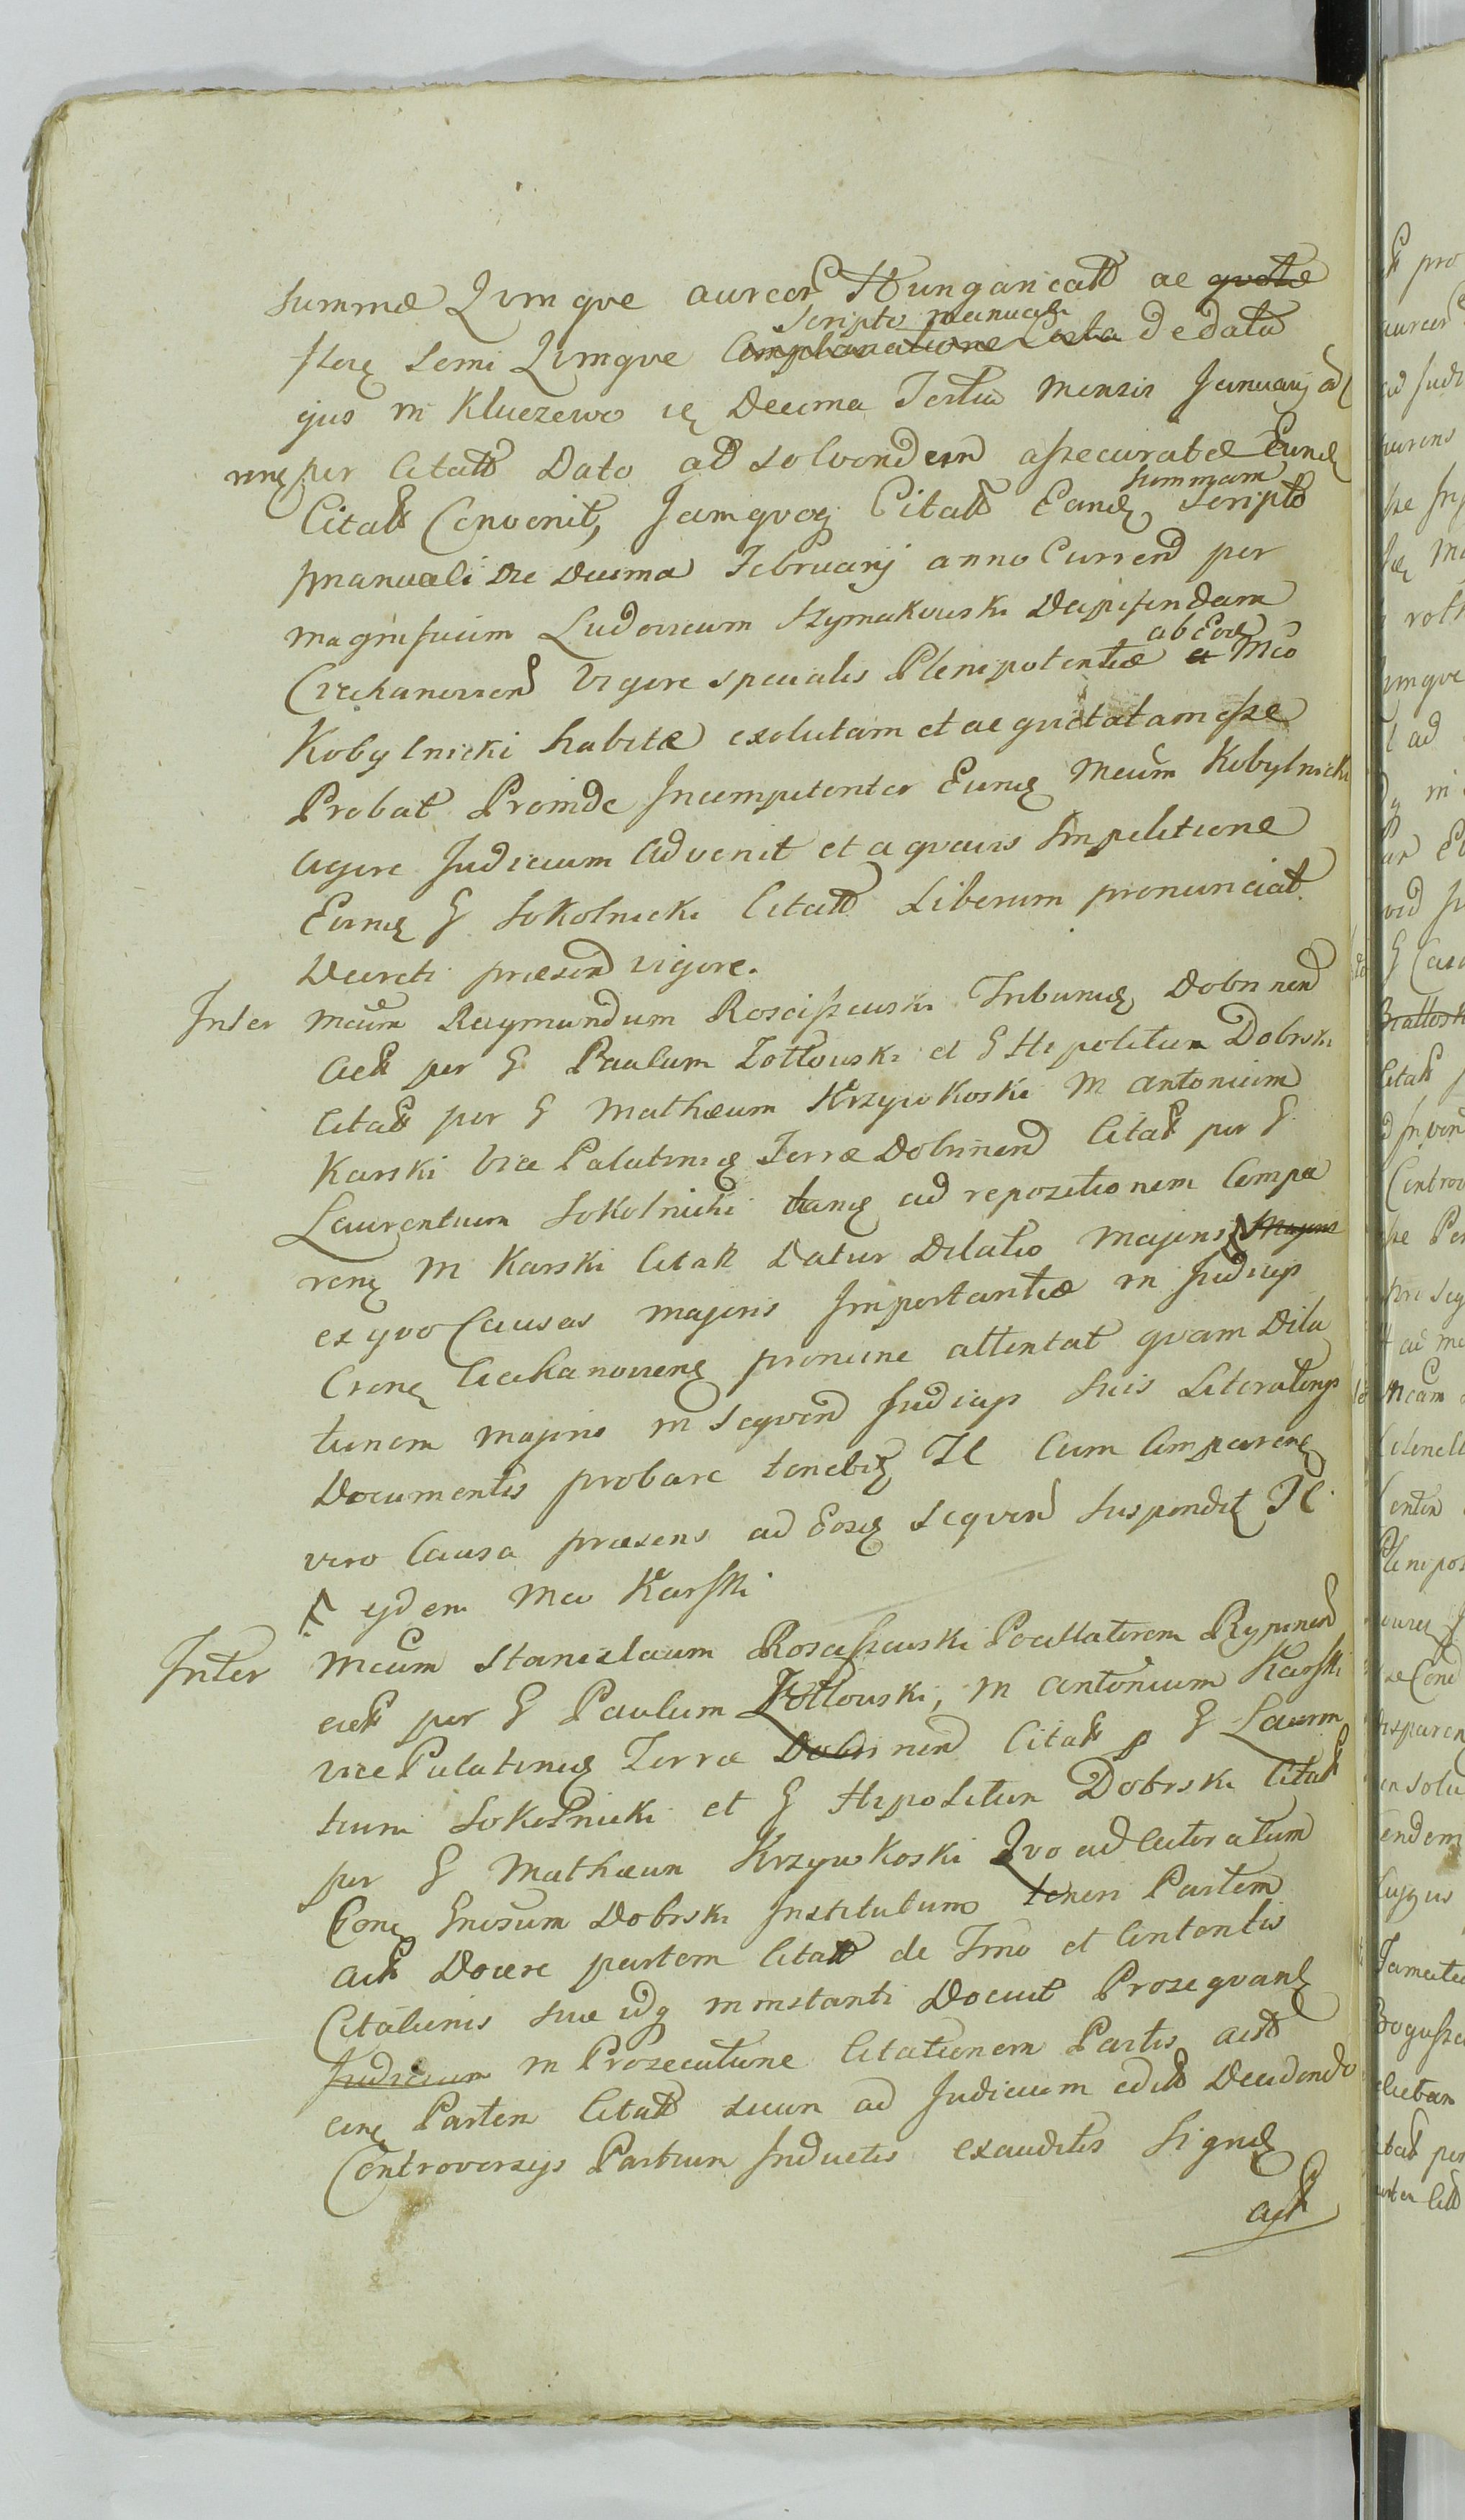 Summæ Qvinqve aureor Hungaricall ac qvotæ
flor Semi Qvinqve Complanatione Certa de data
Scripto manuali
ejus in Kluczewo ie Decima Tertia Mensis Januarij ad
per Citatt Dato ad Solvendum assecuratæ Eund
Citatt Convenit, Jamqvoq Citatt Eand Scripto
Summam
manuali Die Decima Februarij anno Curren per
magnificum Ludovicum Szymakowski Dapiferidam
Ciechanovien Vigore specialis Plenipotentiæ a Mco
ab Eod
Kobylnicki habitæ exolutam et ac qvietatam esse
Probat Proinde Incompetenter Eund Mcum Kobylnicki
agere Judicium Advenit et a qvavis Impetitione
Eund G Sokolnicki Citatt Liberum pronunciat
Decreti præsen vigore.
Inter Mcum Raymundum Rosciszewski Tribunum Dobrinen
Act per G Paulum Zottowski et G Hipolitum Dobrski
Citatt per G Mathæum Krzywkoski M Antonium
Karski Vice Palatinum Terræ Dobrinen Citatt per G
Laurentium Sokolnicki tanq ad repositionem Compa
ren M Karski Citatt Datur Dilatio Majoris Majoris
ex qvo Causas majoris Importantiæ in Judicijs
Cren Ciechanovien pronunc attentat qvam Dila
tionem majoris in Seqven Judicijs Suis Literatorijs
Documentis probare tenebit JC Cum Comparen
vero Causa præsens ad Eosd Seqven Suspendit JC
ejdem Mco Karski
Inter Mcum Stanislaum Rosciszewski Pocillatorem Rypinen
act per G Paulum Zottowski, M Antonium Karski
Vice Palatinum Terræ Dobrinen Citatt p G Lauren
tium Sokolnicki et G Hipolitum Dobrski Citatt
per G Mathæum Krzywkoski Qvo ad Citoratum
Con Gnosum Dobrski Institutum teneri Partem
Act Docere partem Citatt de Tmo et Contentis
Citationis suæ idq ininstanti Docuit Proseqvand
Judicium in Prosecutione Citationem Partis act
cin Partem Citatt suum ad Judicium edit Decidendo
Controversijs Partium Inductis exauditis Signd
act